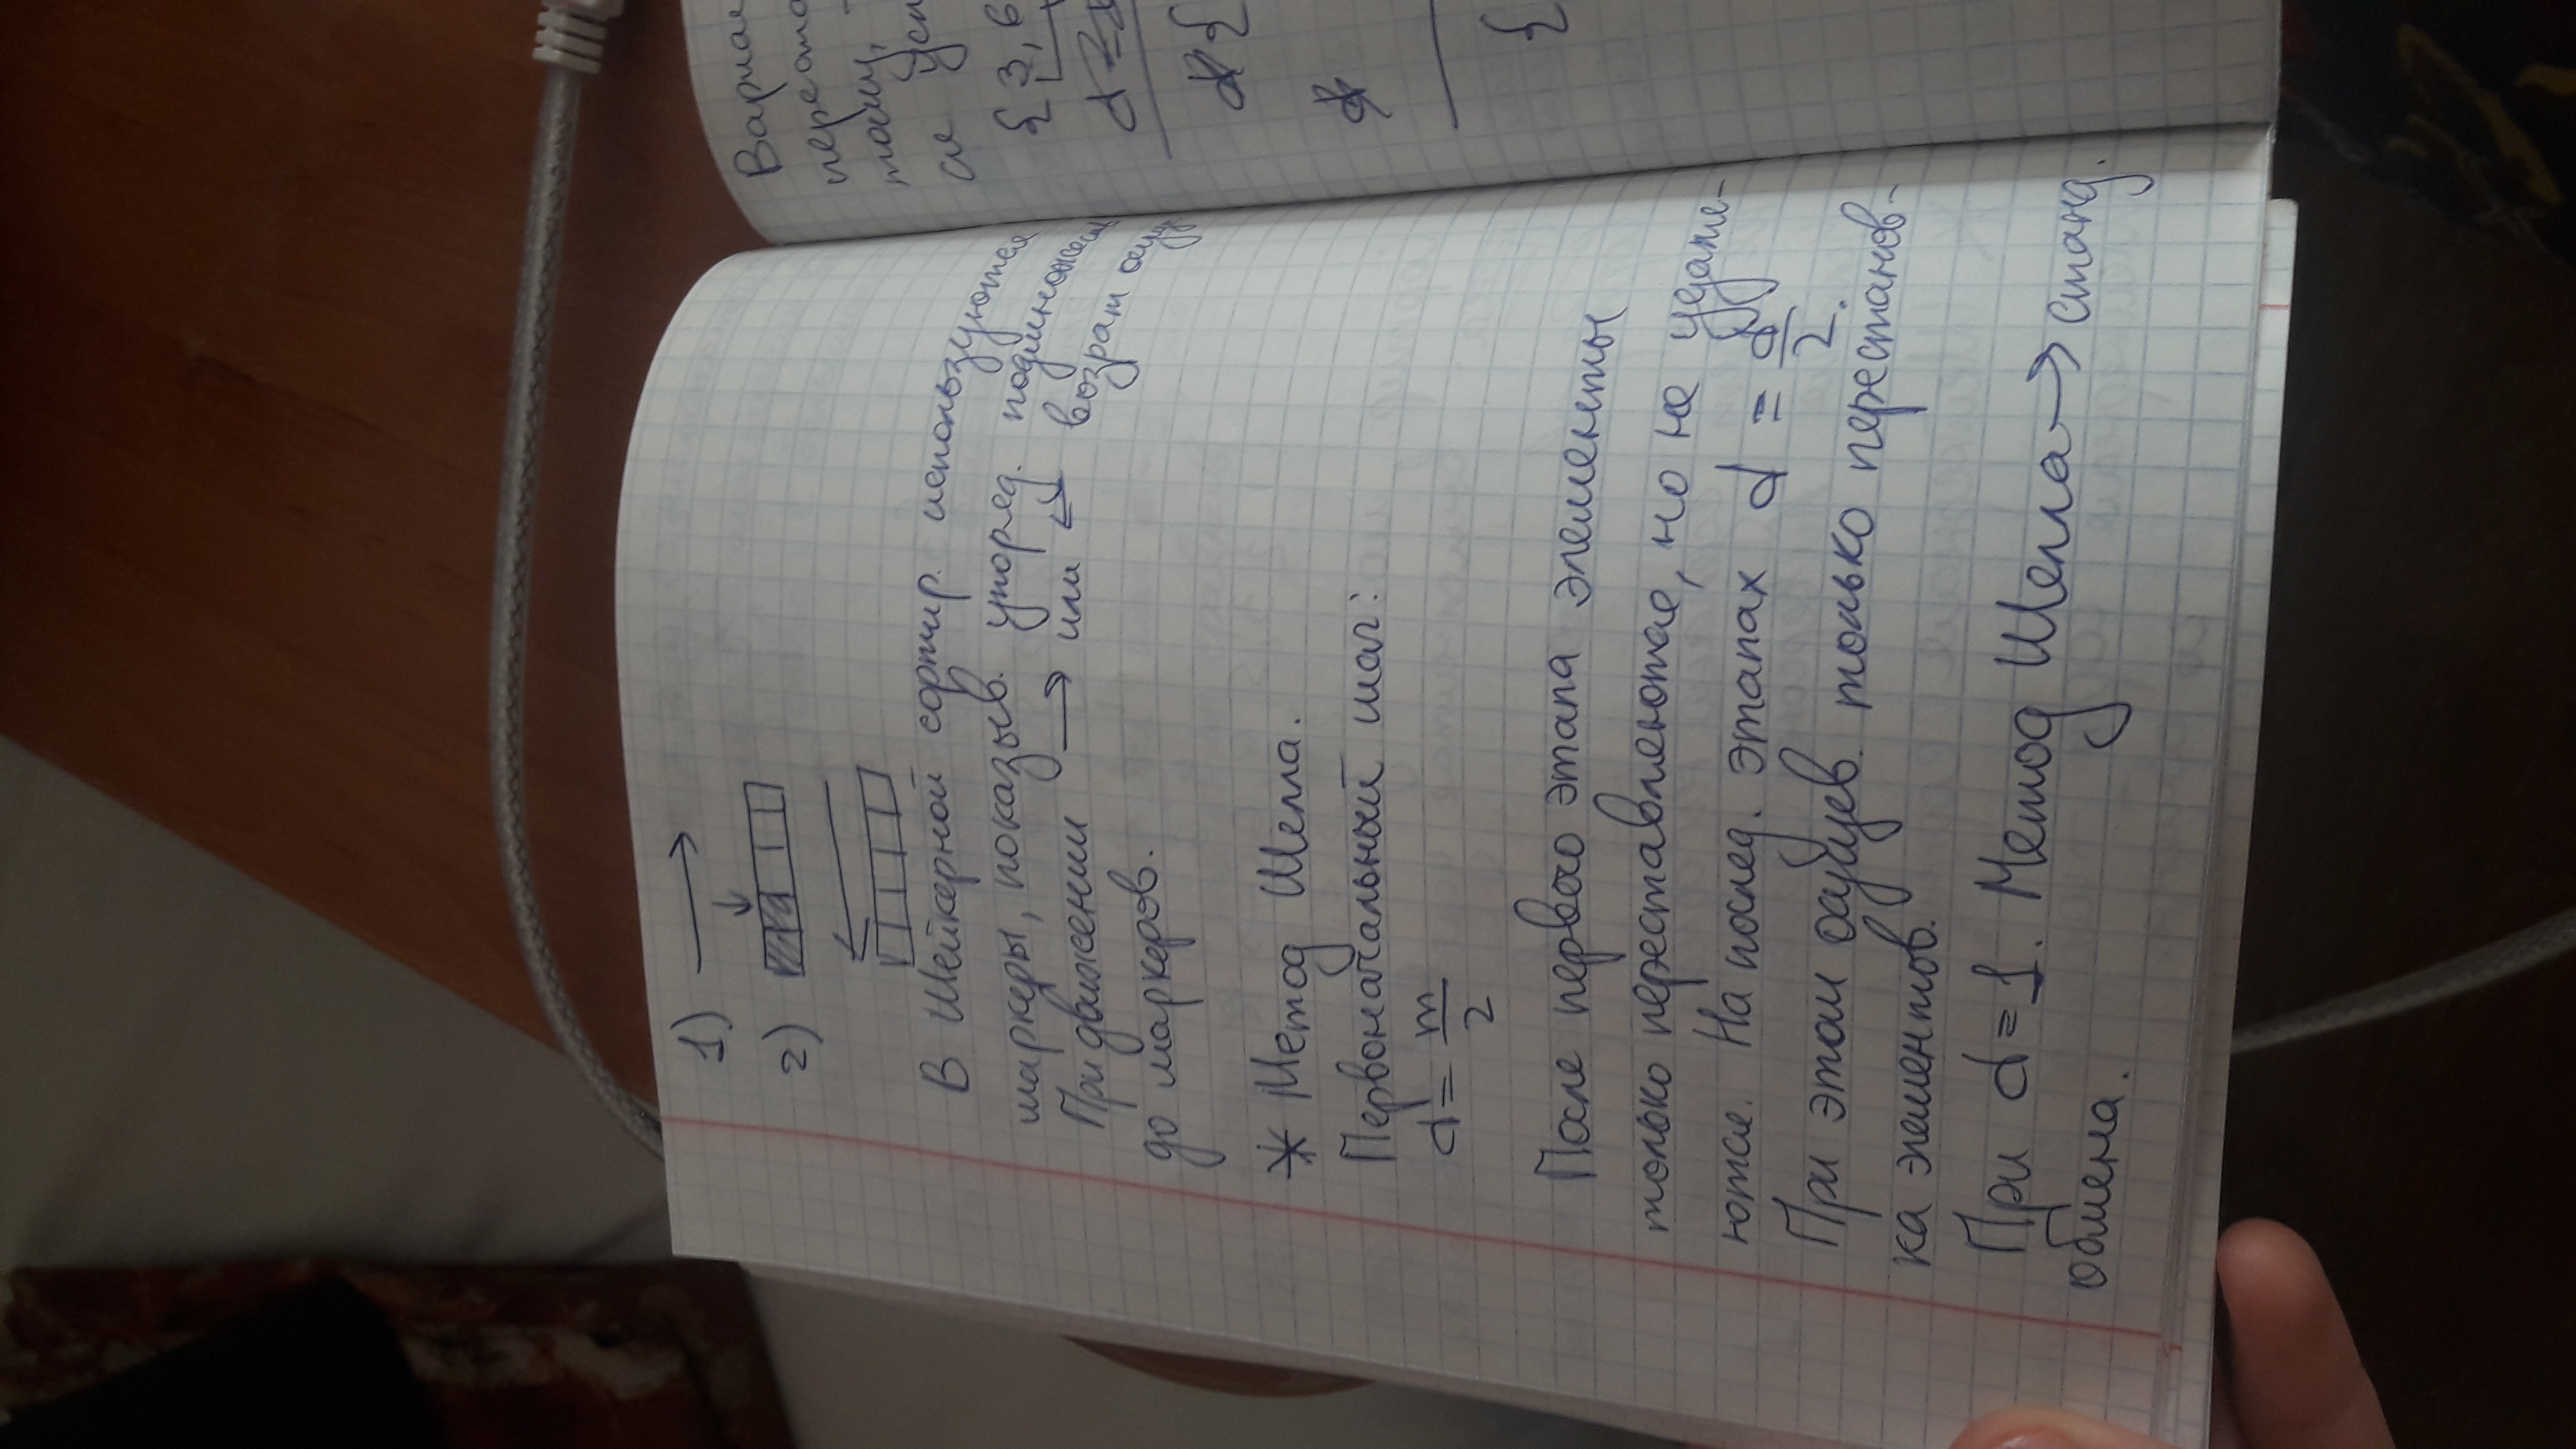 1) →
2)
В Шейкерной сортир. используются
маркеры, показыв. упоряд. подмножеств
При движении → или ← возрат осущ
до маркеров.
* Метод Шелла.
Первоначальный шаг:
d = m/2
После первого этапа элементы
только переставляются, но не удаля-
ются. На послед. этапах d = d/2.
При этом осущев. только перестанов-
ка элементов.
При d=1. Метод Шелла → станд.
обмена.
переста
тому,
ся
{3, 6
{
{